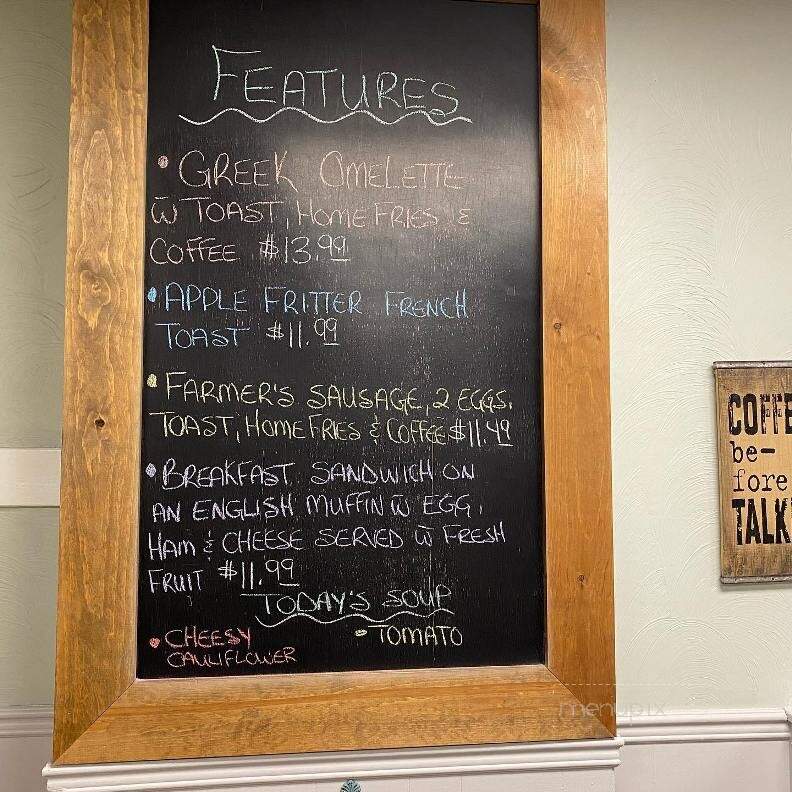 FEATURES
• GREEK OMELETTE
W TOAST, HOME FRIES &
COFFEE $13.99
• APPLE FRITTER FRENCH
TOAST $11.99
• FARMER'S SAUSAGE, 2 EGGS,
TOAST, HOME FRIES & COFFEE $11.49
• BREAKFAST SANDWICH ON
AN ENGLISH MUFFIN W EGG,
HAM & CHEESE SERVED W FRESH
FRUIT $11.99
TODAY'S SOUP
• CHEESY
CAULIFLOWER
• TOMATO
COFFE
be-
fore
TALK
menupix